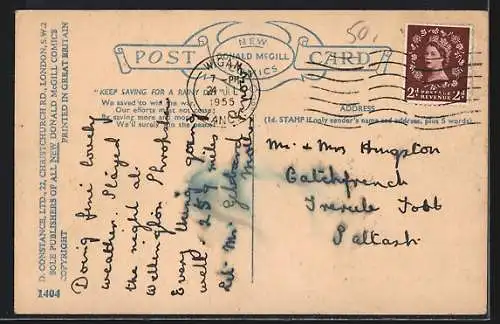 50.
POST CARD
NEW
DONALD McGILL
COMICS
WIGAN
7 - PM
1955
2D POSTAGE REVENUE 2D
"KEEP SAVING FOR A RAINY
We saved to win the war,
Our efforts must not
By saving more and
We'll surely
ADDRESS
(1d. STAMP if only sender's name and address, plus 5 words).
D. CONSTANCE, LTD., 22, CHRISTCHURCH RD., LONDON, S.W.2
SOLE PUBLISHERS OF ALL NEW DONALD McGILL COMICS
COPYRIGHT PRINTED IN GREAT BRITAIN
1404
Doing fine lovely
weather. Stayed
the night at
Wellington Shropsh.
Every thing going
well. 259 miles
Mr & Mrs Hingston
Catchfrench
Trerule Foot
Saltash